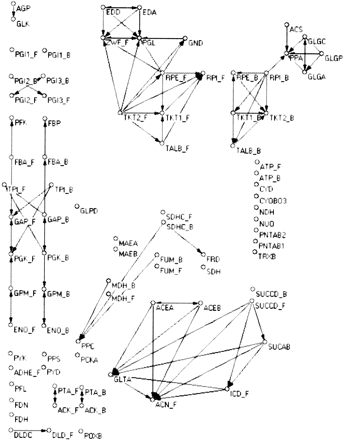 AGP
GLK
EDD EDA
ZWF_F PGL GND
ACS
GLGC
PPA GLGP
GLGA
PGI1_F PGI1_B
PGI2_B PGI3_B
PGI2_F PGI3_F
RPE_F RPI_F
RPE_B RPI_B
TKT2_F TKT1_F
TKT1_B TKT2_B
TALB_F
TALB_B
PFK FBP
FBA_F FBA_B
TPI_F TPI_B
GLPD
GAP_F GAP_B
PGK_F PGK_B
GPM_F GPM_B
ENO_F ENO_B
ATP_F
ATP_B
CYD
CYOBO3
NDH
NUO
PNTAB2
PNTAB1
TRXB
SDHC_F
SDHC_B
MAEA
MAEB
FUM_B
FUM_F
FRD
SDH
MDH_B
MDH_F
PPC
PCKA
ACEA ACEB
SUCCD_B
SUCCD_F
SUCAB
GLTA
ICD_F
ACN_F
PYK PPS
ADHE_F PYD
PFL
FDN
FDH
PTA_F PTA_B
ACK_F ACK_B
DLDC DLD_F POXB